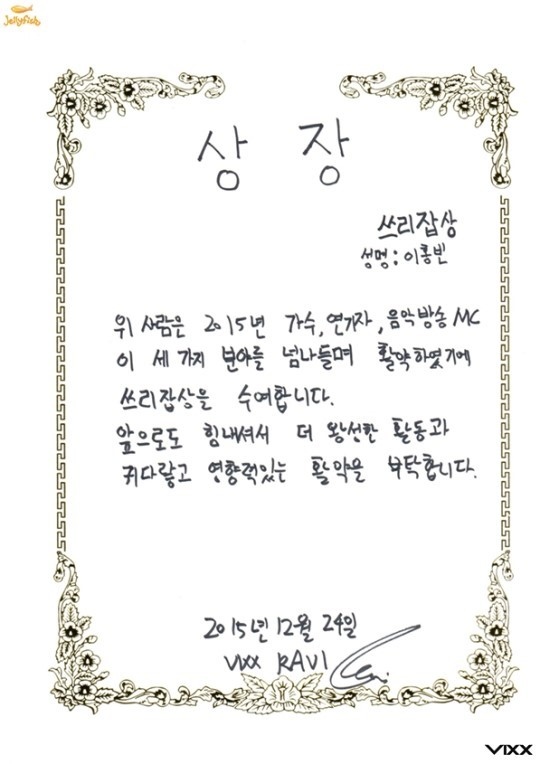 Jellyfish
상 장
쓰리잡상
성명 : 이홍빈
위 사람은 2015년 가수, 연기자, 음악방송 MC
이 세 가지 분야를 넘나들며 활약하였기에
쓰리잡상을 수여합니다.
앞으로도 힘내셔서 더 왕성한 활동과
커다랗고 영향력있는 활약을 부탁합니다.
2015년 12월 24일
VIXX RAVI
VIXX